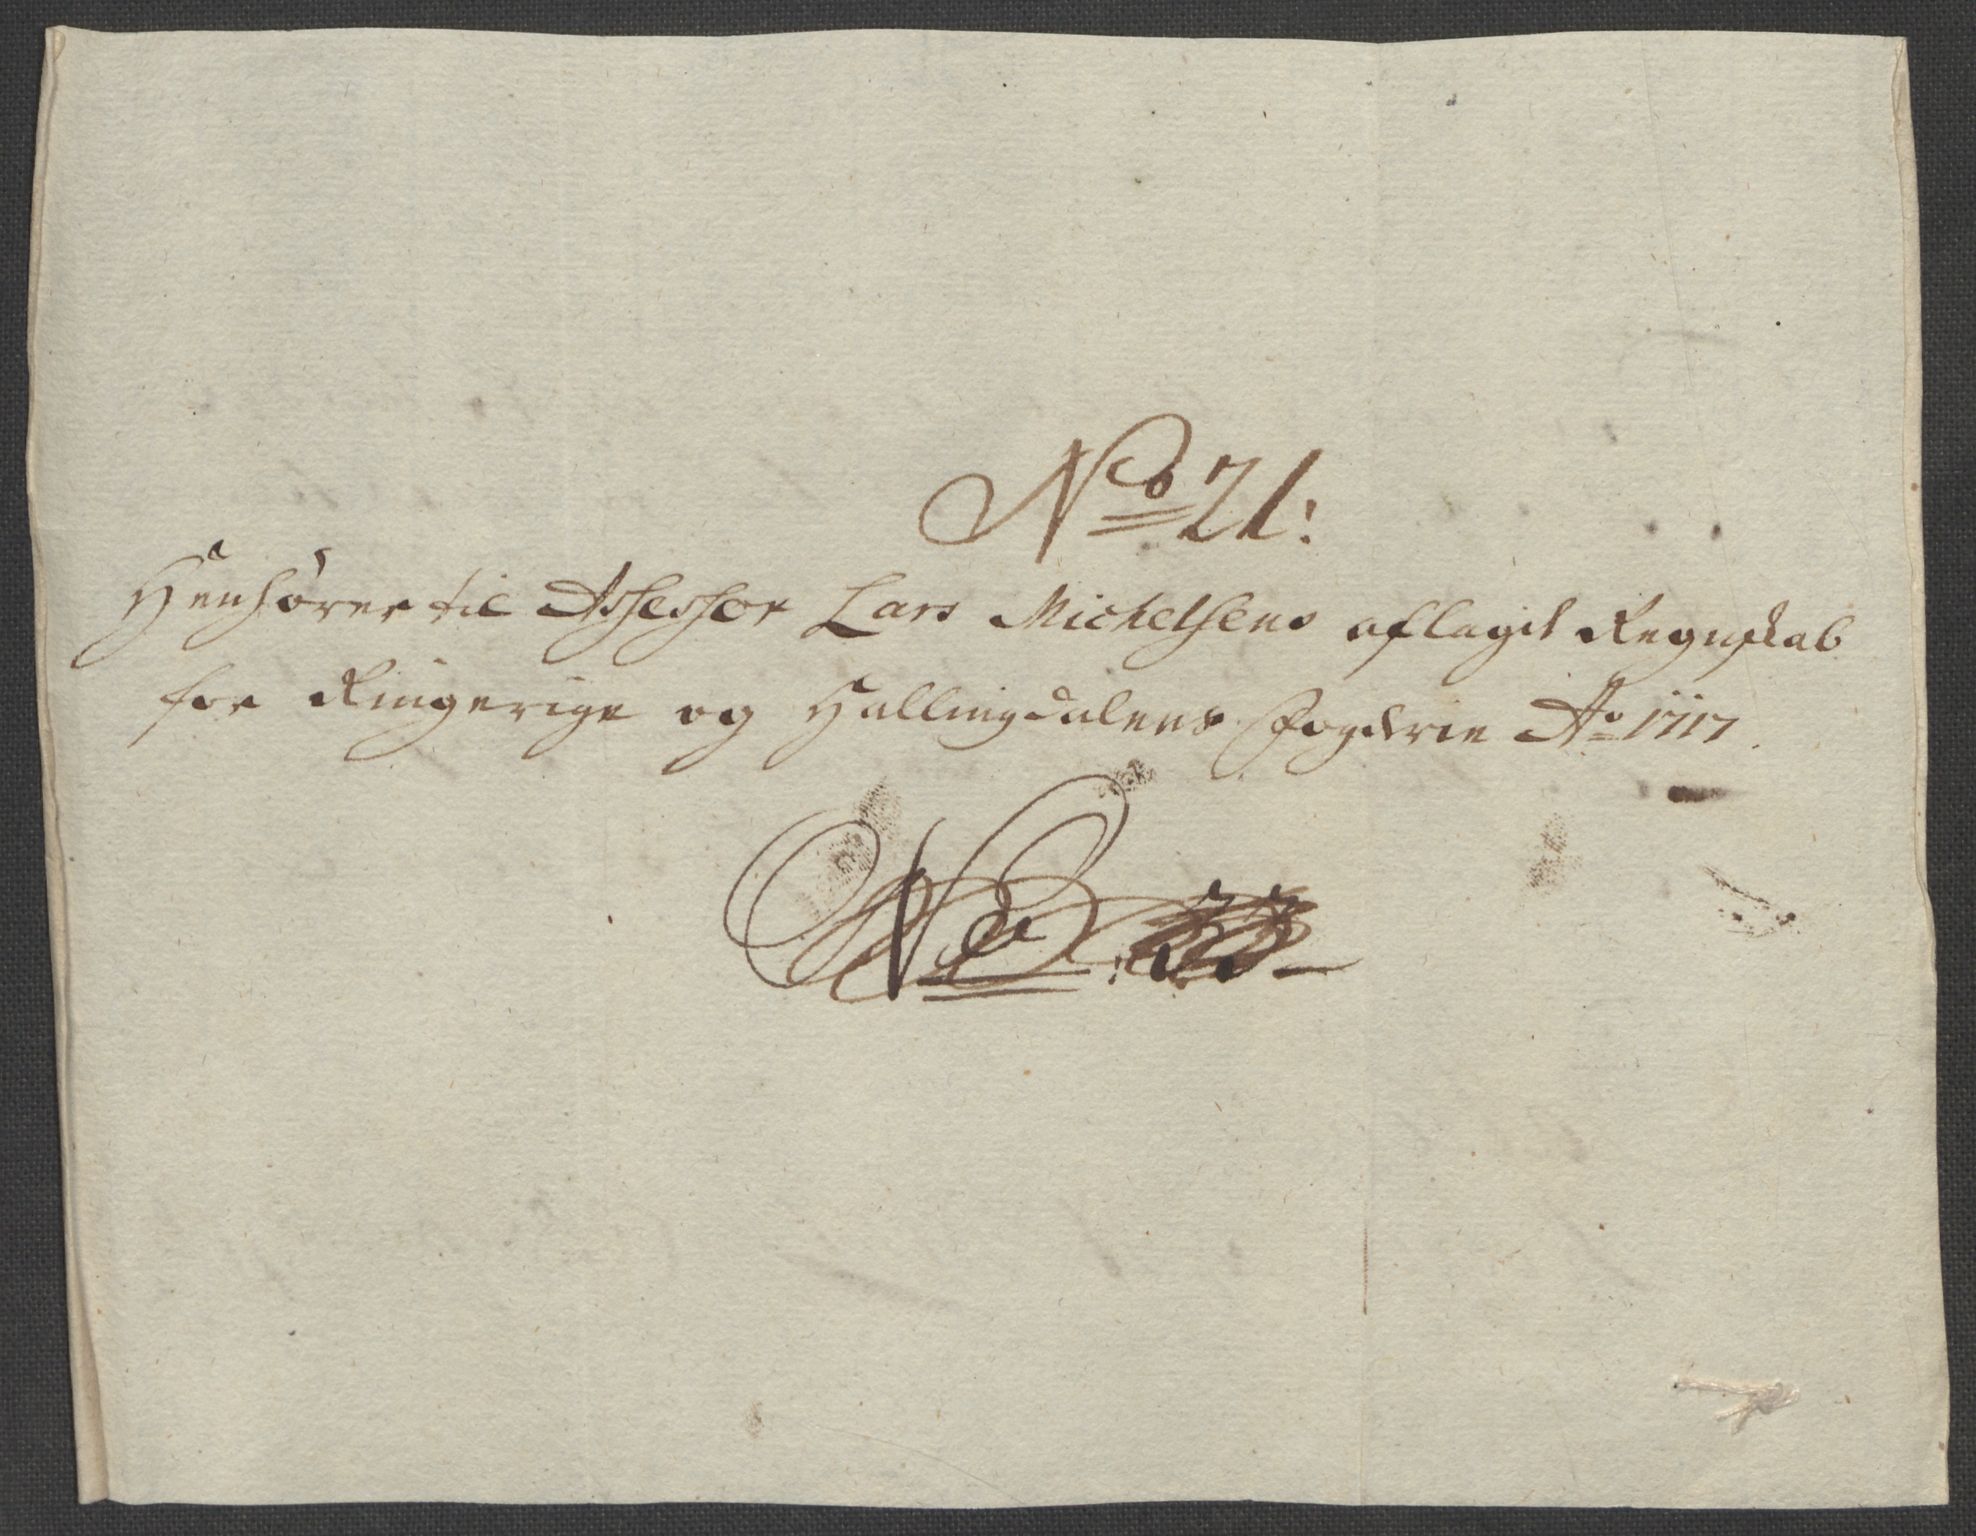 No 21:
Henhörer til Assessor Lars Michelsens aflagde Regnskab
for Ringerige og Hallingdalens Fogderie Ao 1717.
No